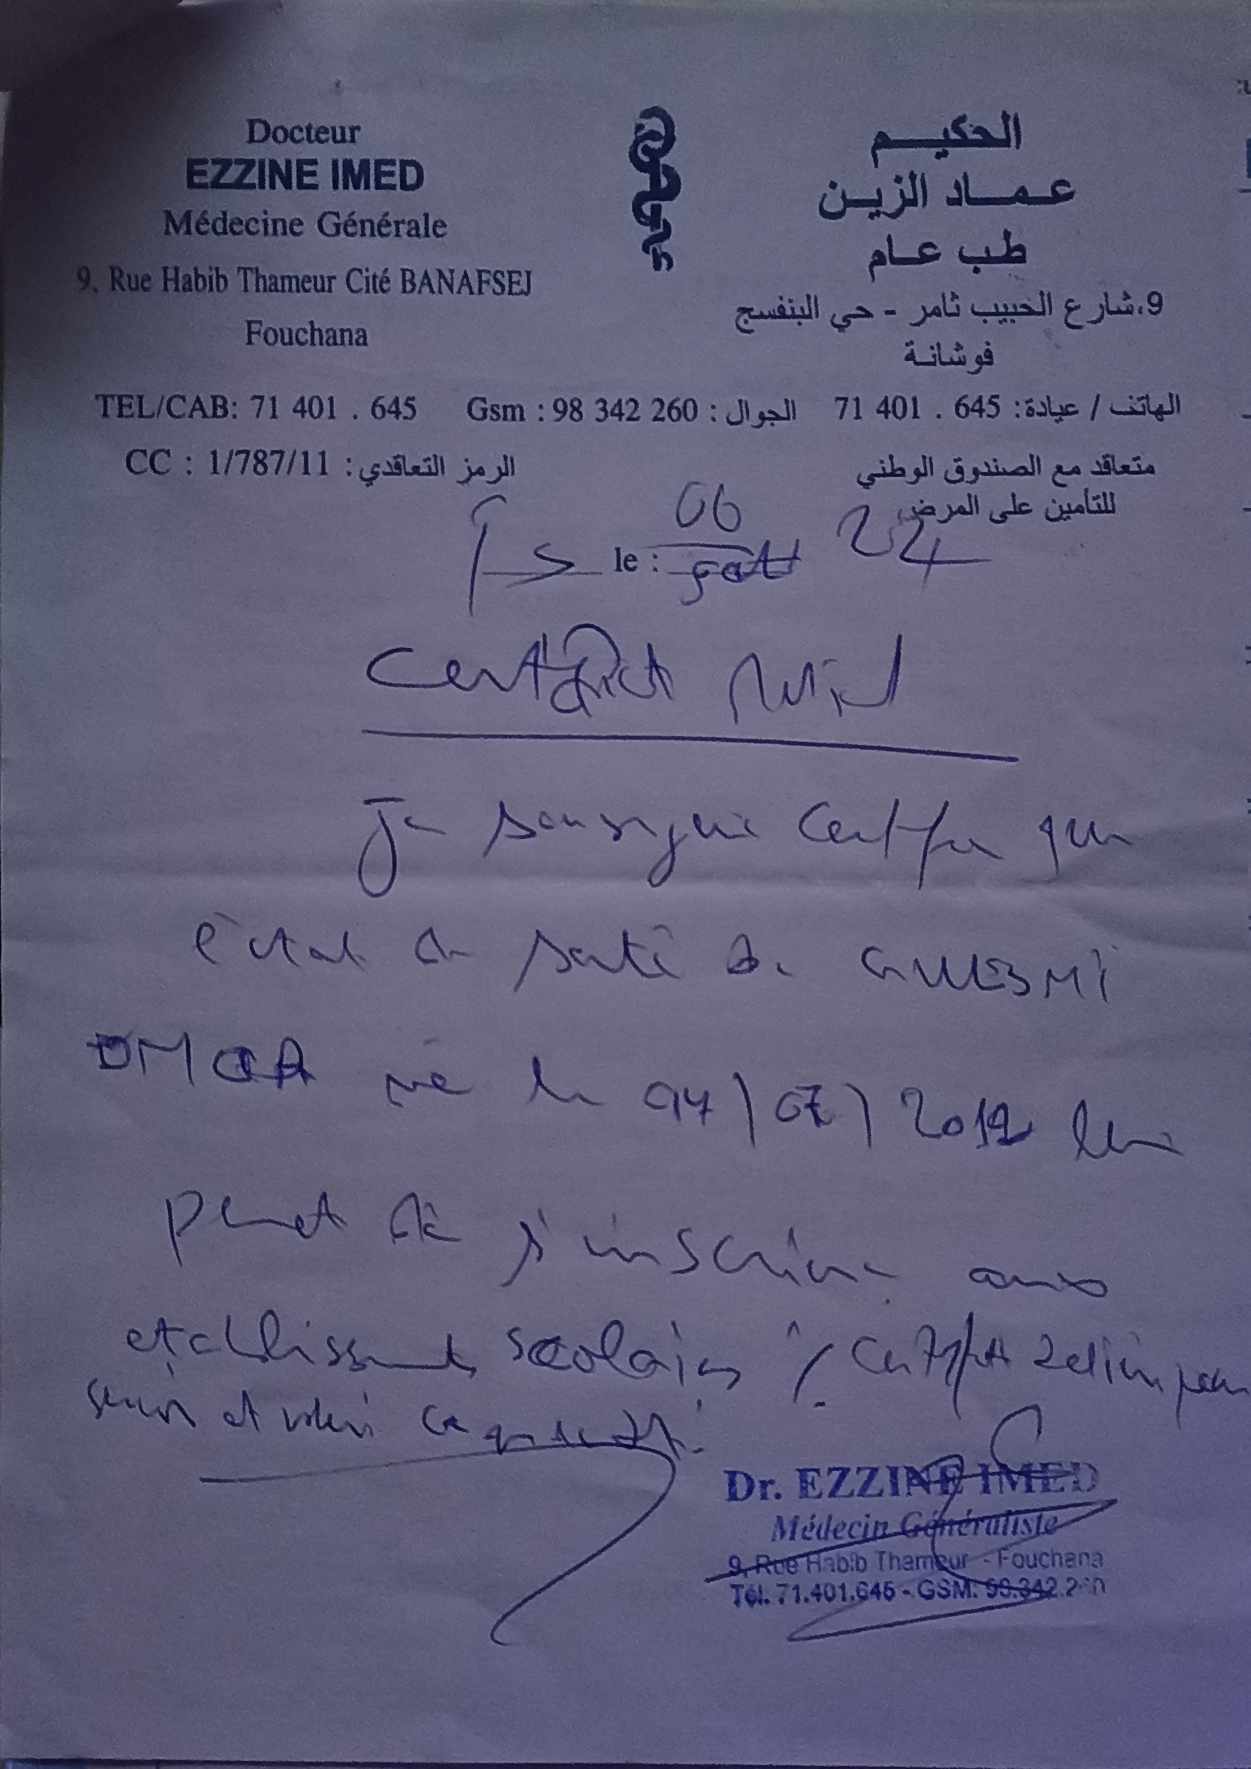 Docteur
EZZINE IMED
Médecine Générale
9, Rue Habib Thameur Cité BANAFSEJ
Fouchana
الحكيم
عماد الزين
طب عام
9،شارع الحبيب ثامر - حي البنفسج
فوشانة
TEL/CAB: 71 401 . 645 Gsm : 98 342 260 : الجوال 71 401 . 645 :الهاتف / عيادة
CC : 1/787/11 : الرمز التعاقدي
متعاقد مع الصندوق الوطني
للتأمين على المرض
le : 06 24
Certificat Médical
Je soussigné certifie que
l'état de santé de GUESMI
OMAR né le 04/07/2012 lui
permet de s'inscrire aux
etablissements scolaires /. Certificat délivré pour
servir et valoir ce que de droit.
Dr. EZZINE IMED
Médecin Généraliste
9, Rue Habib Thameur - Fouchana
Tél. 71.401.645 - GSM: 98.342.260